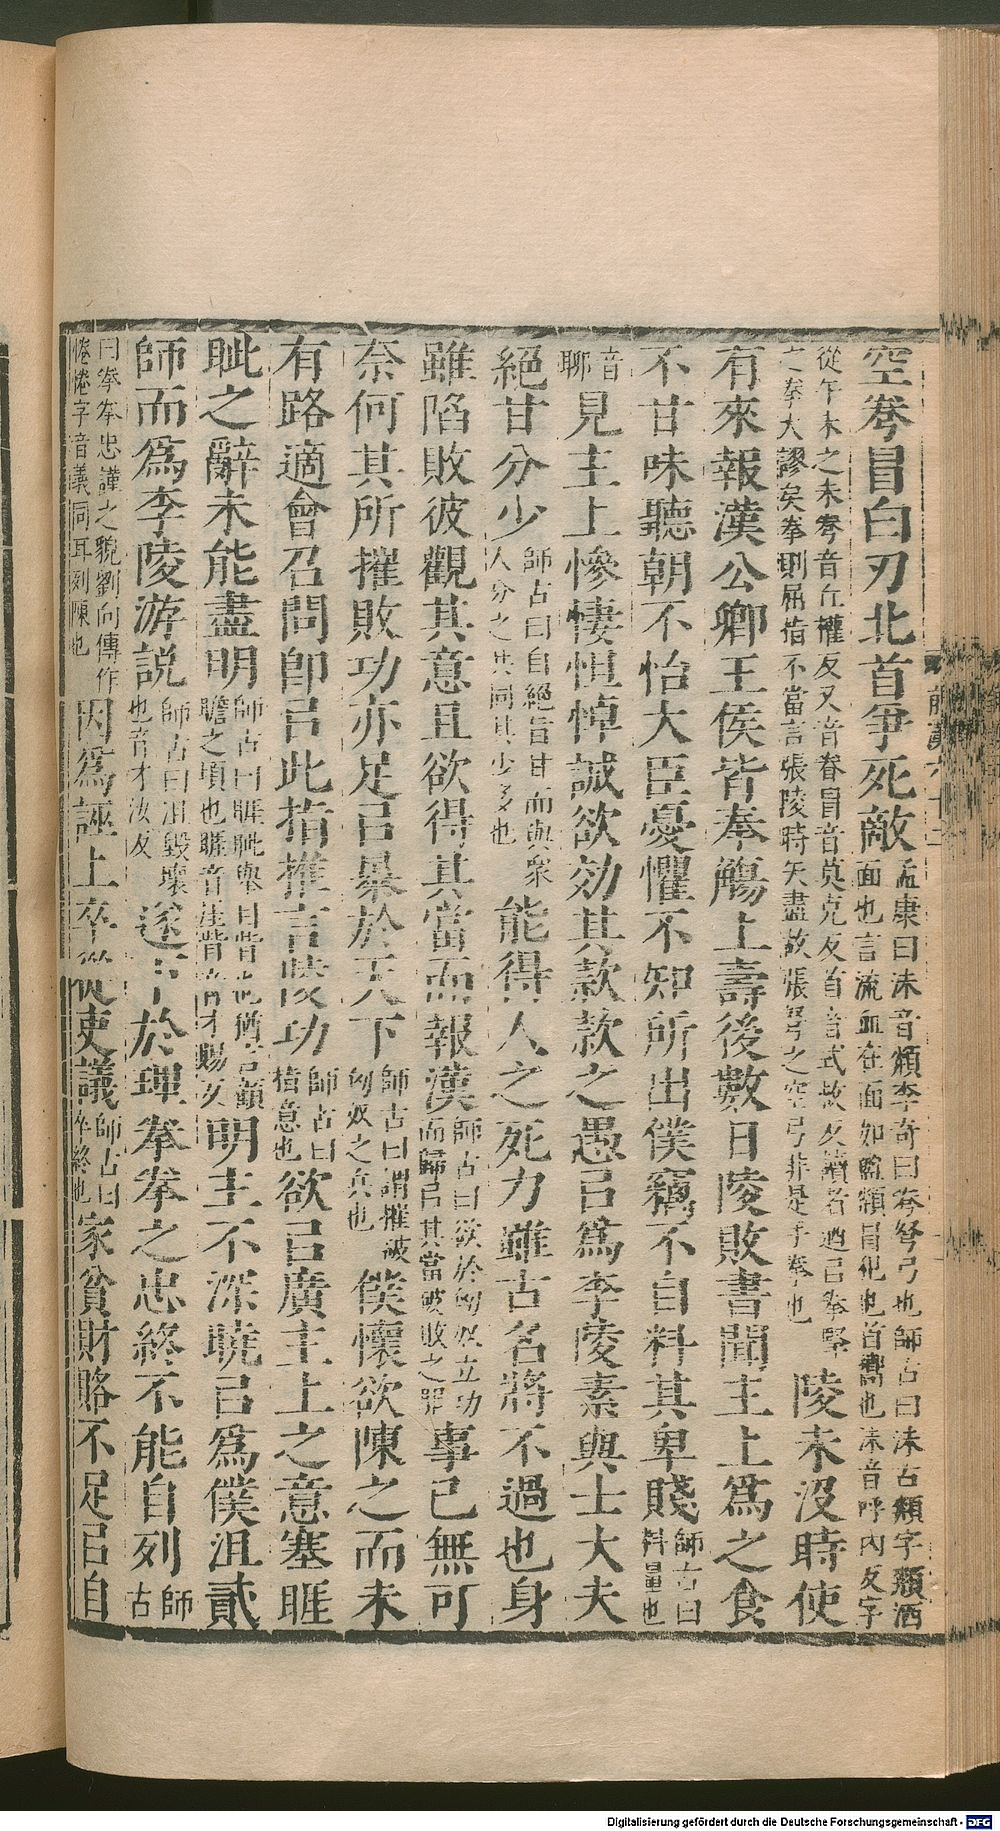 空弮冒白刃北首爭死敵孟康曰沬音頮李奇曰弮弩弓也師古曰沬古頮字頮洒面也言流血在面如盥頮冒犯也首嚮也沬音呼內反字
從午未之未弮音丘權反又音眷冒音莫克反首音式救反讀者乃㠯拳擊之拳大謬矣拳則屈指不當言張陵時矢盡故張弩之空弓非是手拳也陵未沒時使
有來報漢公卿王侯皆奉觴上壽後數日陵敗書聞主上爲之食
不甘味聽朝不怡大臣憂懼不知所出僕竊不自料其卑賤師古曰料量也
音聊見主上慘悽怛悼誠欲効其款款之愚㠯爲李陵素與士大夫
絕甘分少師古曰自絕旨甘而與衆人分之共同其少多也能得人之死力雖古名將不過也身
雖陷敗彼觀其意且欲得其當而報漢師古曰欲於匈奴立功而歸㠯其當破敗之罪事已無可
奈何其所摧敗功亦足㠯暴於天下師古曰謂摧破匈奴之兵也僕懷欲陳之而未
有路適會召問卽㠯此指推言陵功師古曰指意也欲㠯廣主上之意塞睚
眦之辭未能盡明師古曰睚眦舉目眥也猶言顧瞻之頃也睚音厓眥音才賜反明主不深曉㠯爲僕沮貳
師而爲李陵游說師古曰沮毀壞也音才汝反遂下於理拳拳之忠終不能自列師古
曰拳拳忠謹之貌劉向傳作惓惓字音議同耳列陳也因爲誣上卒從吏議師古曰卒終也家貧財賂不足㠯自
前漢六十二
Digitalisierung gefördert durch die Deutsche Forschungsgemeinschaft - DFG